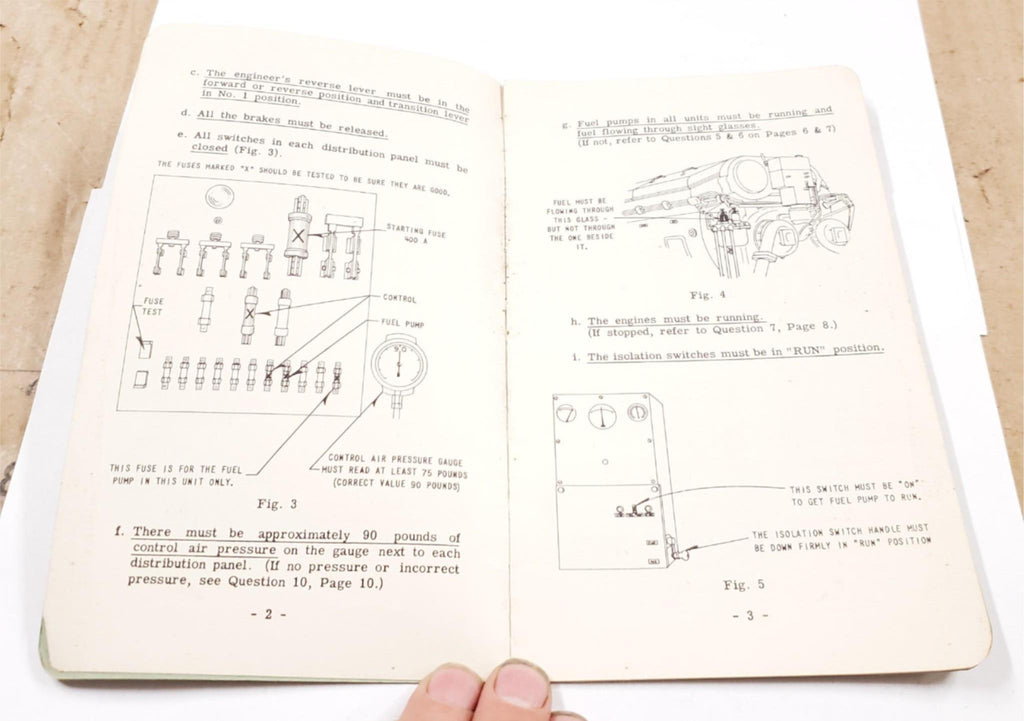 c. The engineer's reverse lever must be in the
forward or reverse position and transition lever
in No. 1 position.
d. All the brakes must be released.
e. All switches in each distribution panel must be
closed (Fig. 3).
THE FUSES MARKED "X" SHOULD BE TESTED TO BE SURE THEY ARE GOOD.
STARTING FUSE
400 A
X
CONTROL
X
FUSE
TEST
FUEL PUMP
90
CONTROL AIR PRESSURE GAUGE
MUST READ AT LEAST 75 POUNDS
(CORRECT VALUE 90 POUNDS)
THIS FUSE IS FOR THE FUEL
PUMP IN THIS UNIT ONLY.
Fig. 3
f. There must be approximately 90 pounds of
control air pressure on the gauge next to each
distribution panel. (If no pressure or incorrect
pressure, see Question 10, Page 10.)
- 2 -
g. Fuel pumps in all units must be running and
fuel flowing through sight glasses.
(If not, refer to Questions 5 & 6 on Pages 6 & 7)
FUEL MUST BE
FLOWING THROUGH
THIS GLASS -
BUT NOT THROUGH
THE ONE BESIDE
IT.
Fig. 4
h. The engines must be running.
(If stopped, refer to Question 7, Page 8.)
i. The isolation switches must be in "RUN" position.
THIS SWITCH MUST BE "ON"
TO GET FUEL PUMP TO RUN.
THE ISOLATION SWITCH HANDLE MUST
BE DOWN FIRMLY IN "RUN" POSITION
Fig. 5
- 3 -